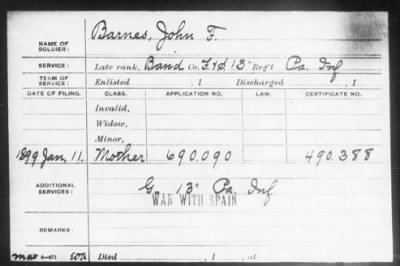 NAME OF SOLDIER: Barnes, John F.
SERVICE: Late rank, Band Co. F. & S. 13" Reg't Pa. Inf
TERM OF SERVICE: Enlisted , 1 Discharged , 1
DATE OF FILING. CLASS. APPLICATION NO. LAW. CERTIFICATE NO.
Invalid,
Widow,
Minor,
1899 Jan. 11. Mother 690.090 490.388
ADDITIONAL SERVICES: G. 13" Pa. Inf
WAR WITH SPAIN
REMARKS:
Died , 1 , at